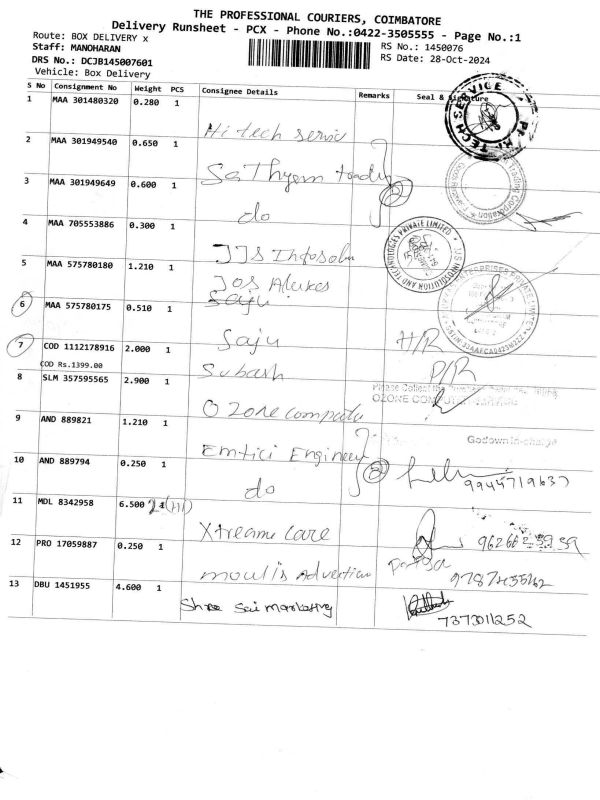 THE PROFESSIONAL COURIERS, COIMBATORE
Delivery Runsheet - PCX - Phone No.:0422-3505555 - Page No.:1
Route: BOX DELIVERY x
RS No.: 1450076
Staff: MANOHARAN
RS Date: 28-Oct-2024
DRS No.: DCJB145007601
Vehicle: Box Delivery
S No Consignment No Weight PCS Consignee Details Remarks Seal & Signature
1 MAA 301480320 0.280 1 Hi tech servic
2 MAA 301949540 0.650 1 Sathyam
3 MAA 301949649 0.600 1 do
4 MAA 705553886 0.300 1 JJS Infosoln
5 MAA 575780180 1.210 1 Jos Alukes
Saju
6 MAA 575780175 0.510 1 Saju H/R
7 COD 1112178916 2.000 1 Subash P/R
COD Rs.1399.00
8 SLM 357595565 2.900 1 Ozone computer
Please Collect the
OZONE COMPUTER
9 AND 889821 1.210 1 Emtici Engineer
Godown in-charge
10 AND 889794 0.250 1 do 9945719637
11 MDL 8342958 6.500 Xtreame care
12 PRO 17059887 0.250 1 moulis Advertion
13 DBU 1451955 4.600 1 Shree Sai marketing 7373011252